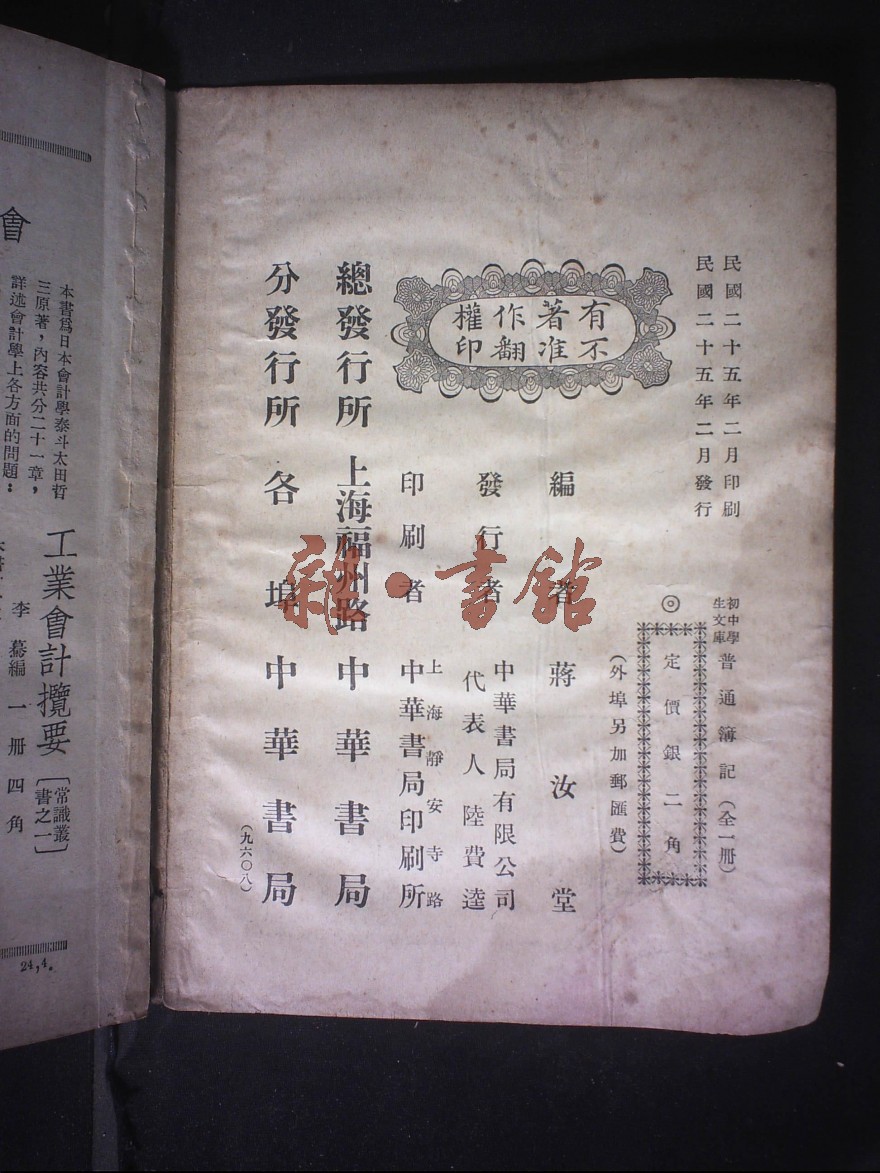 民國二十五年二月印刷
民國二十五年二月發行
初中學
生文庫
普通簿記（全一冊）
◎
定價銀二角
（外埠另加郵匯費）
有著作權
不准翻印
編者 蔣汝堂
發行者
中華書局有限公司
代表人陸費逵
印刷者
上海靜安寺路
中華書局印刷所
總發行所 上海福州路 中華書局
分發行所 各埠中華書局
（九六〇八）
雜·書館
會
本書爲日本會計學泰斗太田哲
三原著，內容共分二十一章，
詳述會計學上各方面的問題：
工業會計攬要
［常識叢
書之一］
李驀編 一冊四角
24,4.